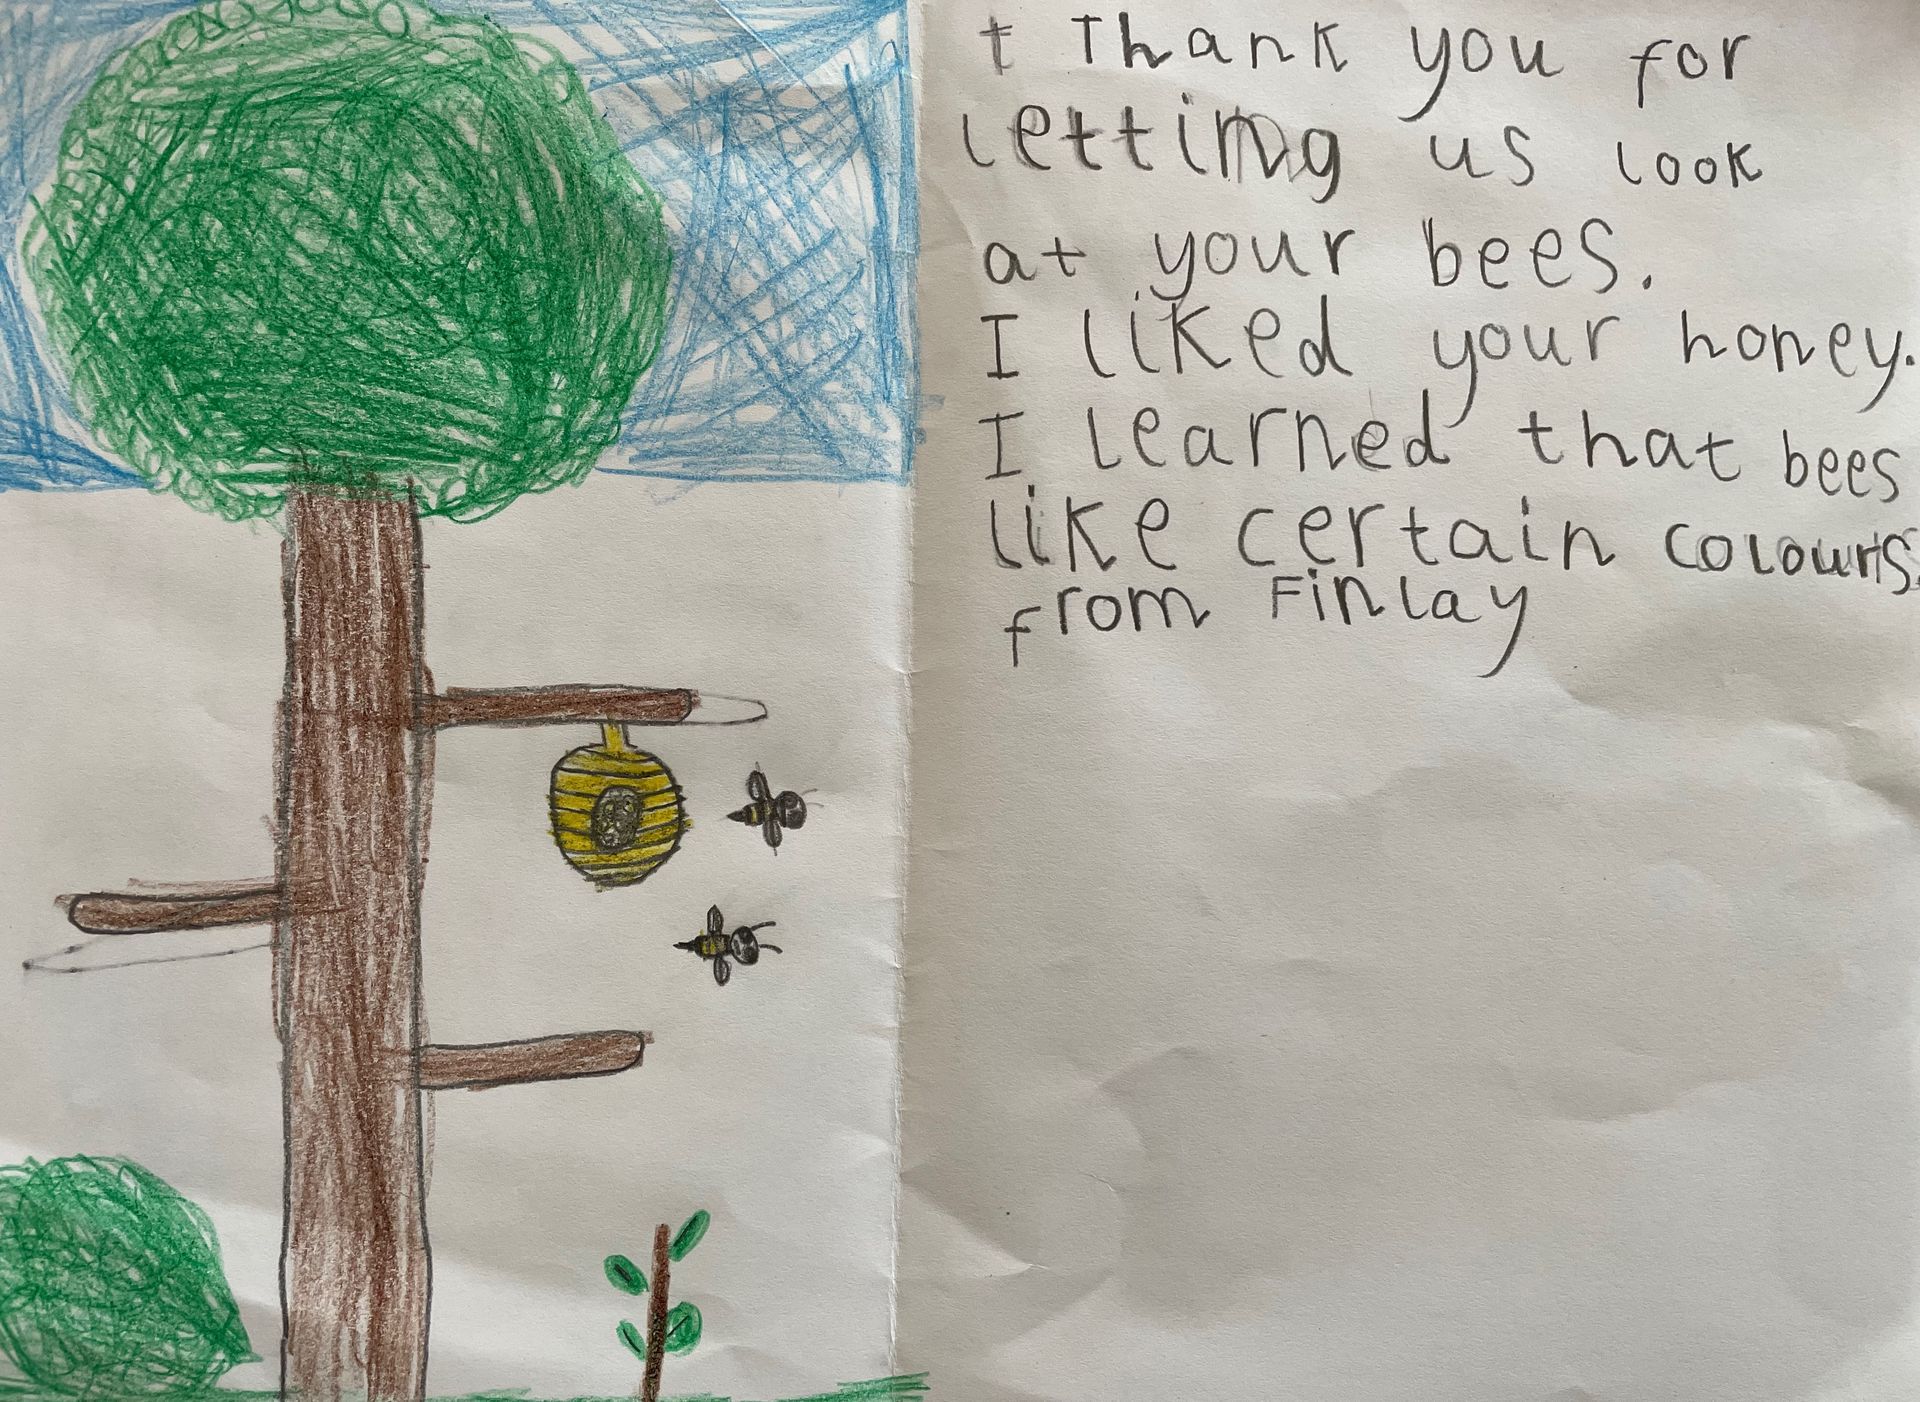 t Thank you for
letting us look
at your bees.
I liked your honey.
I learned that bees
like certain colours.
from Finlay